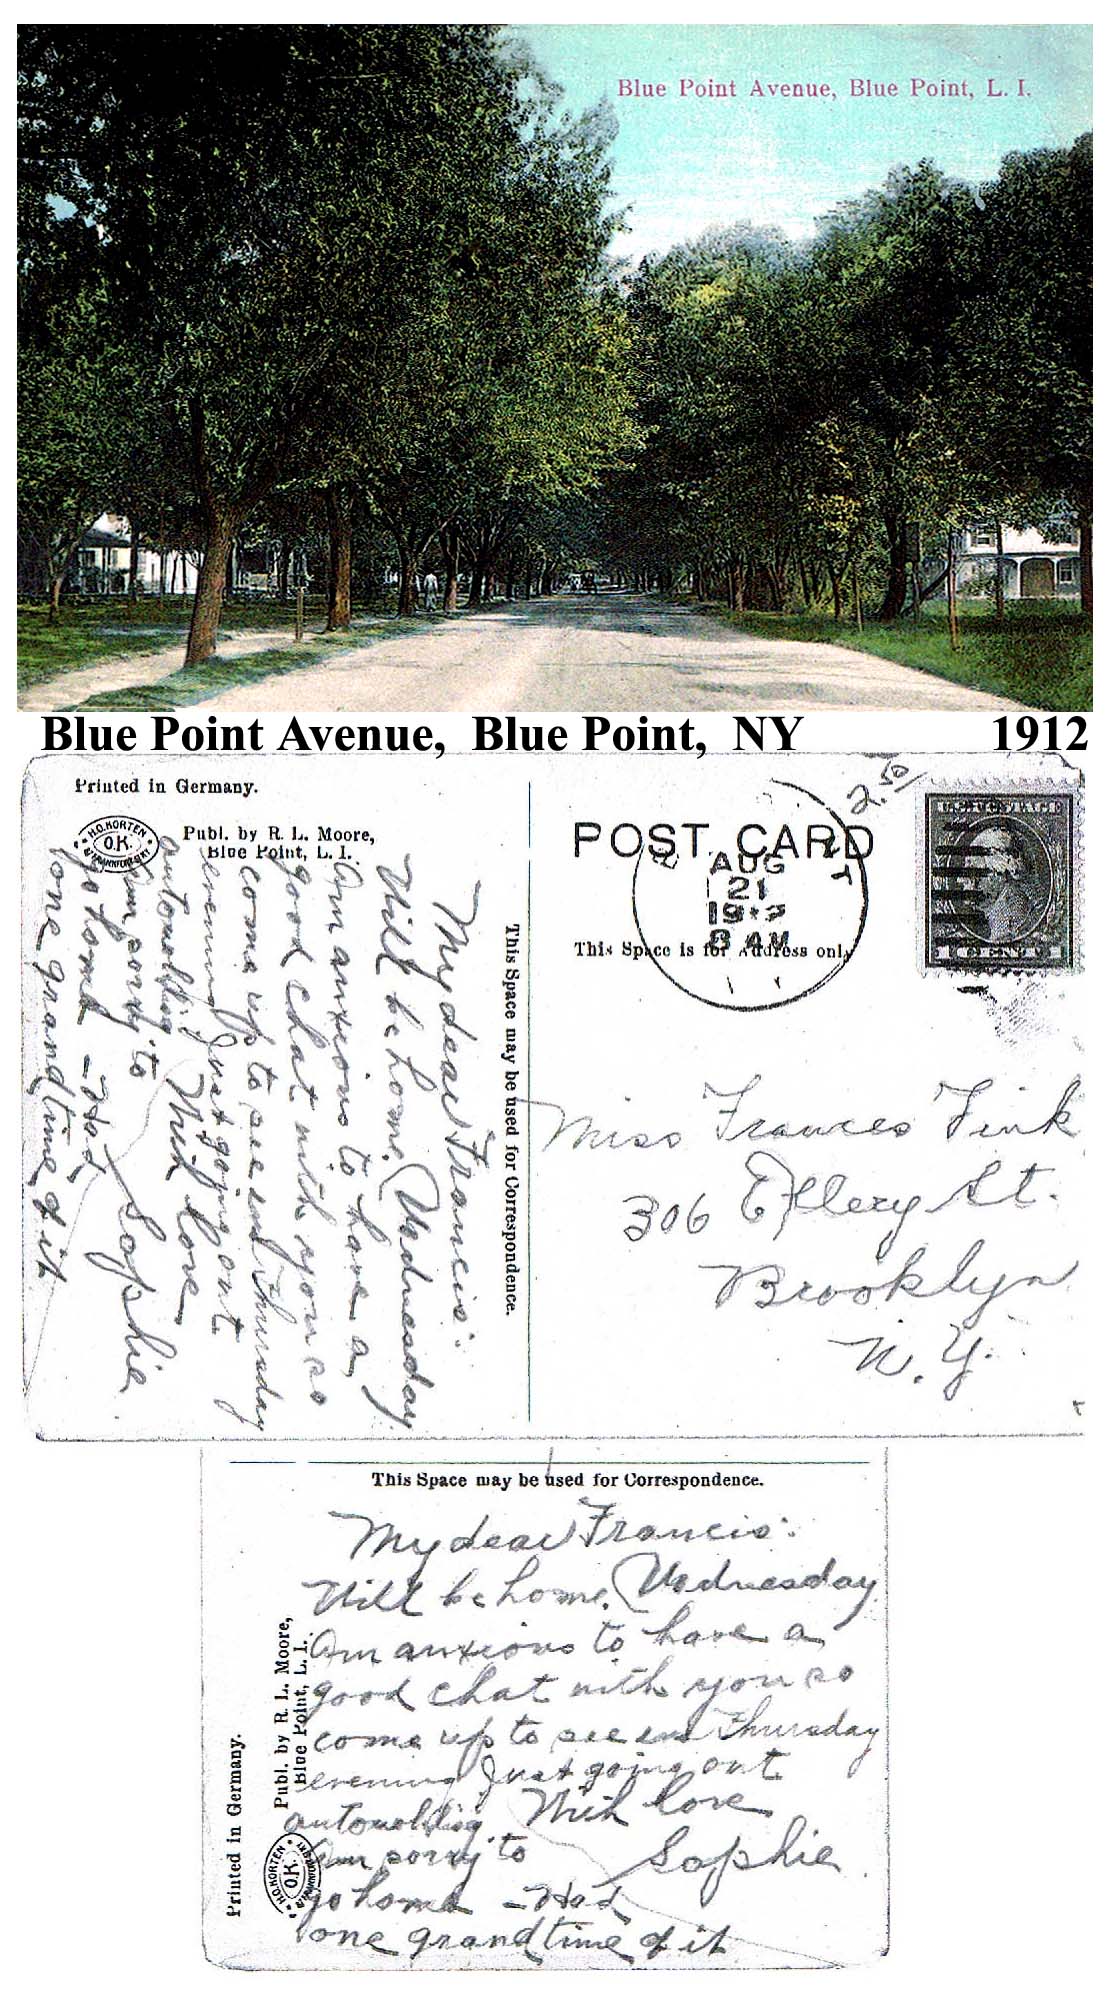 Blue Point Avenue, Blue Point, L. I.
Blue Point Avenue, Blue Point, NY 1912
Printed in Germany.
H.O. KORTEN
O.K.
Publ. by R. L. Moore,
Blue Point, L. I.
POST CARD
2.50/
U.S. POSTAGE
1 CENT 1
AUG
21
8 AM
This Space is for Address only
This Space may be used for Correspondence.
My dear Francis:
Will be home Wednesday
Am anxious to have a
good chat with you so
come up to see me Thursday
evening Just going out
With love
Am sorry to
Sophie
go home – Had
one grand time of it
Miss Frances Fink
306 Ellery St.
Brooklyn
N. Y.
This Space may be used for Correspondence.
My dear Francis:
Will be home Wednesday
Am anxious to have a
good chat with you so
come up to see me Thursday
evening Just going out
With love
Am sorry to
Sophie
go home – Had
one grand time of it
Printed in Germany.
Publ. by R. L. Moore,
Blue Point, L. I.
H.O. KORTEN
O.K.